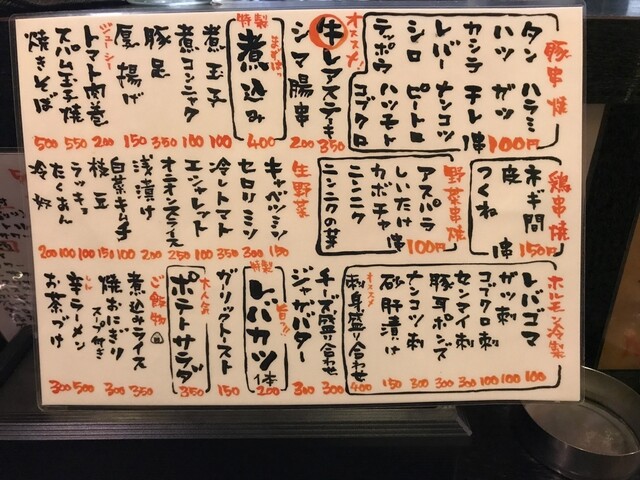 豚串焼
タン ハラミ
ハツ ガツ
カシラ チレ
レバー ナンコツ
シロ ピートロ
テッポウ ハツモト
コブクロ
串100円
オススメ!
牛レアステーキ 350
シマ腸串 200
特製
まずは!
煮込み 400
煮玉子 100
煮コンニャク 100
豚足 350
厚揚げ 150
ジューシー
トマト肉巻 200
スパム玉子焼 550
焼きそば 500
鶏串焼
ネギ間
皮
つくね
串150円
野菜串焼
アスパラ
しいたけ
カボチャ
ニンニク
ニンニクの芽
串100円
生野菜
キャベツミソ 150
セロリミソ 300
冷しトマト 350
エシャレット 100
オニオンスライス 250
浅漬け 200
白菜キムチ 100
枝豆 150
ラッキョ 100
たくあん 100
冷奴 200
ホルモン冷製
レバゴマ 100
ガツ刺 100
コブクロ刺 100
センマイ刺 300
豚耳ポンズ 300
ナンコツ刺 300
砂肝漬け 150
オススメ
刺身盛り合わせ 400
チーズ盛り合わせ 300
ジャガバター 300
特製
旨っ!!
レバカツ 1本 200
ガリックトースト 150
大人気
ポテトサラダ 350
ご飯物
煮込みライス 350
焼おにぎり スープ付き 300
辛ラーメン 500
お茶づけ 300